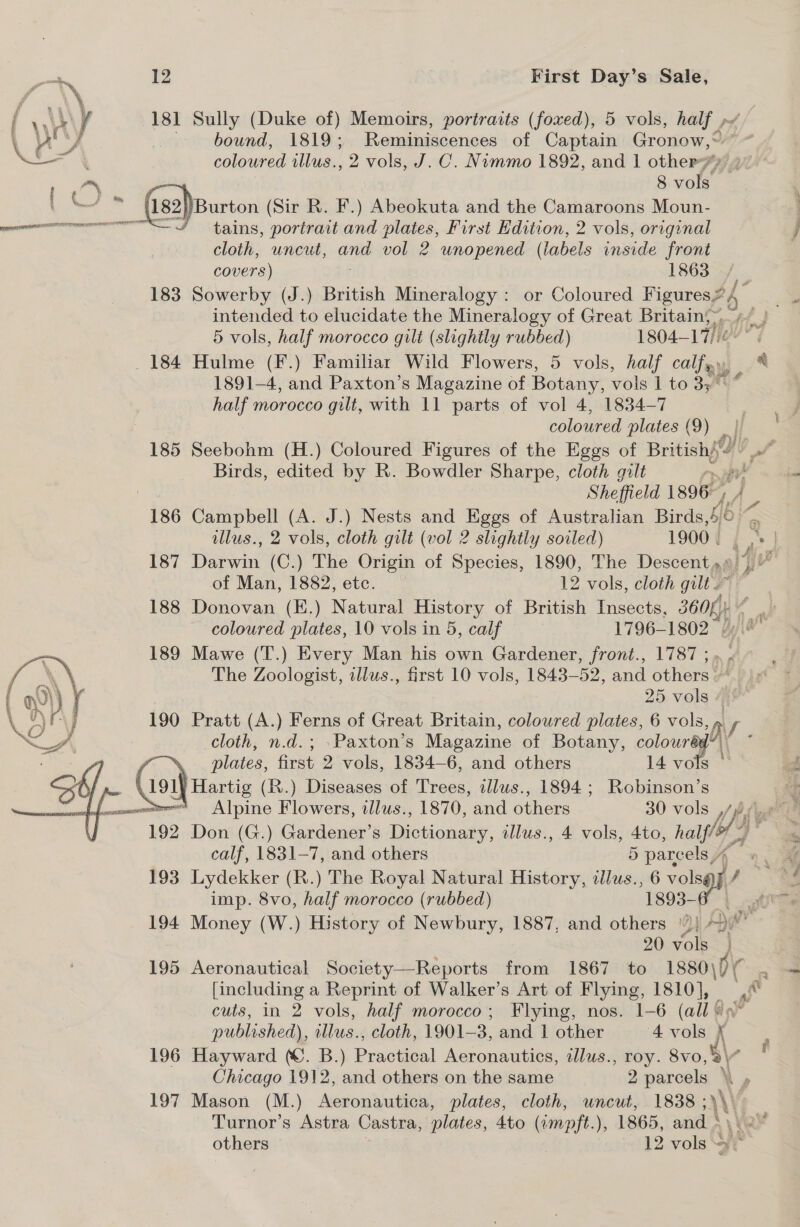 12 First Day's Sale,
181 Sully (Duke of) Memoirs, portraits (foxed), 5 vols, half
bound, 1819; Reminiscences of Captain Gronow,
coloured illus., 2 vols, J. C. Nimmo 1892, and 1 other
8 vols
182 Burton (Sir R. F.) Abeokuta and the Camaroons Moun-
tains, portrait and plates, First Edition, 2 vols, original
cloth, uncut, and vol 2 unopened (labels inside front
covers) 1863
183 Sowerby (J.) British Mineralogy: or Coloured Figures
intended to elucidate the Mineralogy of Great Britain,
5 vols, half morocco gilt (slightly rubbed) 1804–17
184 Hulme (F.) Familiar Wild Flowers, 5 vols, half calf,
1891–4, and Paxton's Magazine of Botany, vols 1 to 3,
half morocco gilt, with 11 parts of vol 4, 1834–7
coloured plates (9)
185 Seebohm (H.) Coloured Figures of the Eggs of British
Birds, edited by R. Bowdler Sharpe, cloth gilt
Sheffield 1896
186 Campbell (A. J.) Nests and Eggs of Australian Birds,
illus., 2 vols, cloth gilt (vol 2 slightly soiled) 1900
187 Darwin (C.) The Origin of Species, 1890, The Descent
of Man, 1882, etc. 12 vols, cloth gilt
188 Donovan (E.) Natural History of British Insects, 360
coloured plates, 10 vols in 5, calf 1796–1802
189 Mawe (T.) Every Man his own Gardener, front., 1787;
The Zoologist, illus., first 10 vols, 1843–52, and others
25 vols
190 Pratt (A.) Ferns of Great Britain, coloured plates, 6 vols,
cloth, n.d.; Paxton's Magazine of Botany, coloured
plates, first 2 vols, 1834–6, and others 14 vols
191 Hartig (R.) Diseases of Trees, illus., 1894; Robinson's
Alpine Flowers, illus., 1870, and others 30 vols
192 Don (G.) Gardener's Dictionary, illus., 4 vols, 4to, half
calf, 1831–7, and others 5 parcels
193 Lydekker (R.) The Royal Natural History, illus., 6 vols
imp. 8vo, half morocco (rubbed) 1893–6
194 Money (W.) History of Newbury, 1887, and others
20 vols
195 Aeronautical Society—Reports from 1867 to 1880
[including a Reprint of Walker's Art of Flying, 1810],
cuts, in 2 vols, half morocco; Flying, nos. 1–6 (all
published), illus., cloth, 1901–3, and 1 other 4 vols
196 Hayward (C. B.) Practical Aeronautics, illus., roy. 8vo,
Chicago 1912, and others on the same 2 parcels
197 Mason (M.) Aeronautica, plates, cloth, uncut, 1838;
Turnor's Astra Castra, plates, 4to (impft.), 1865, and
others 12 vols